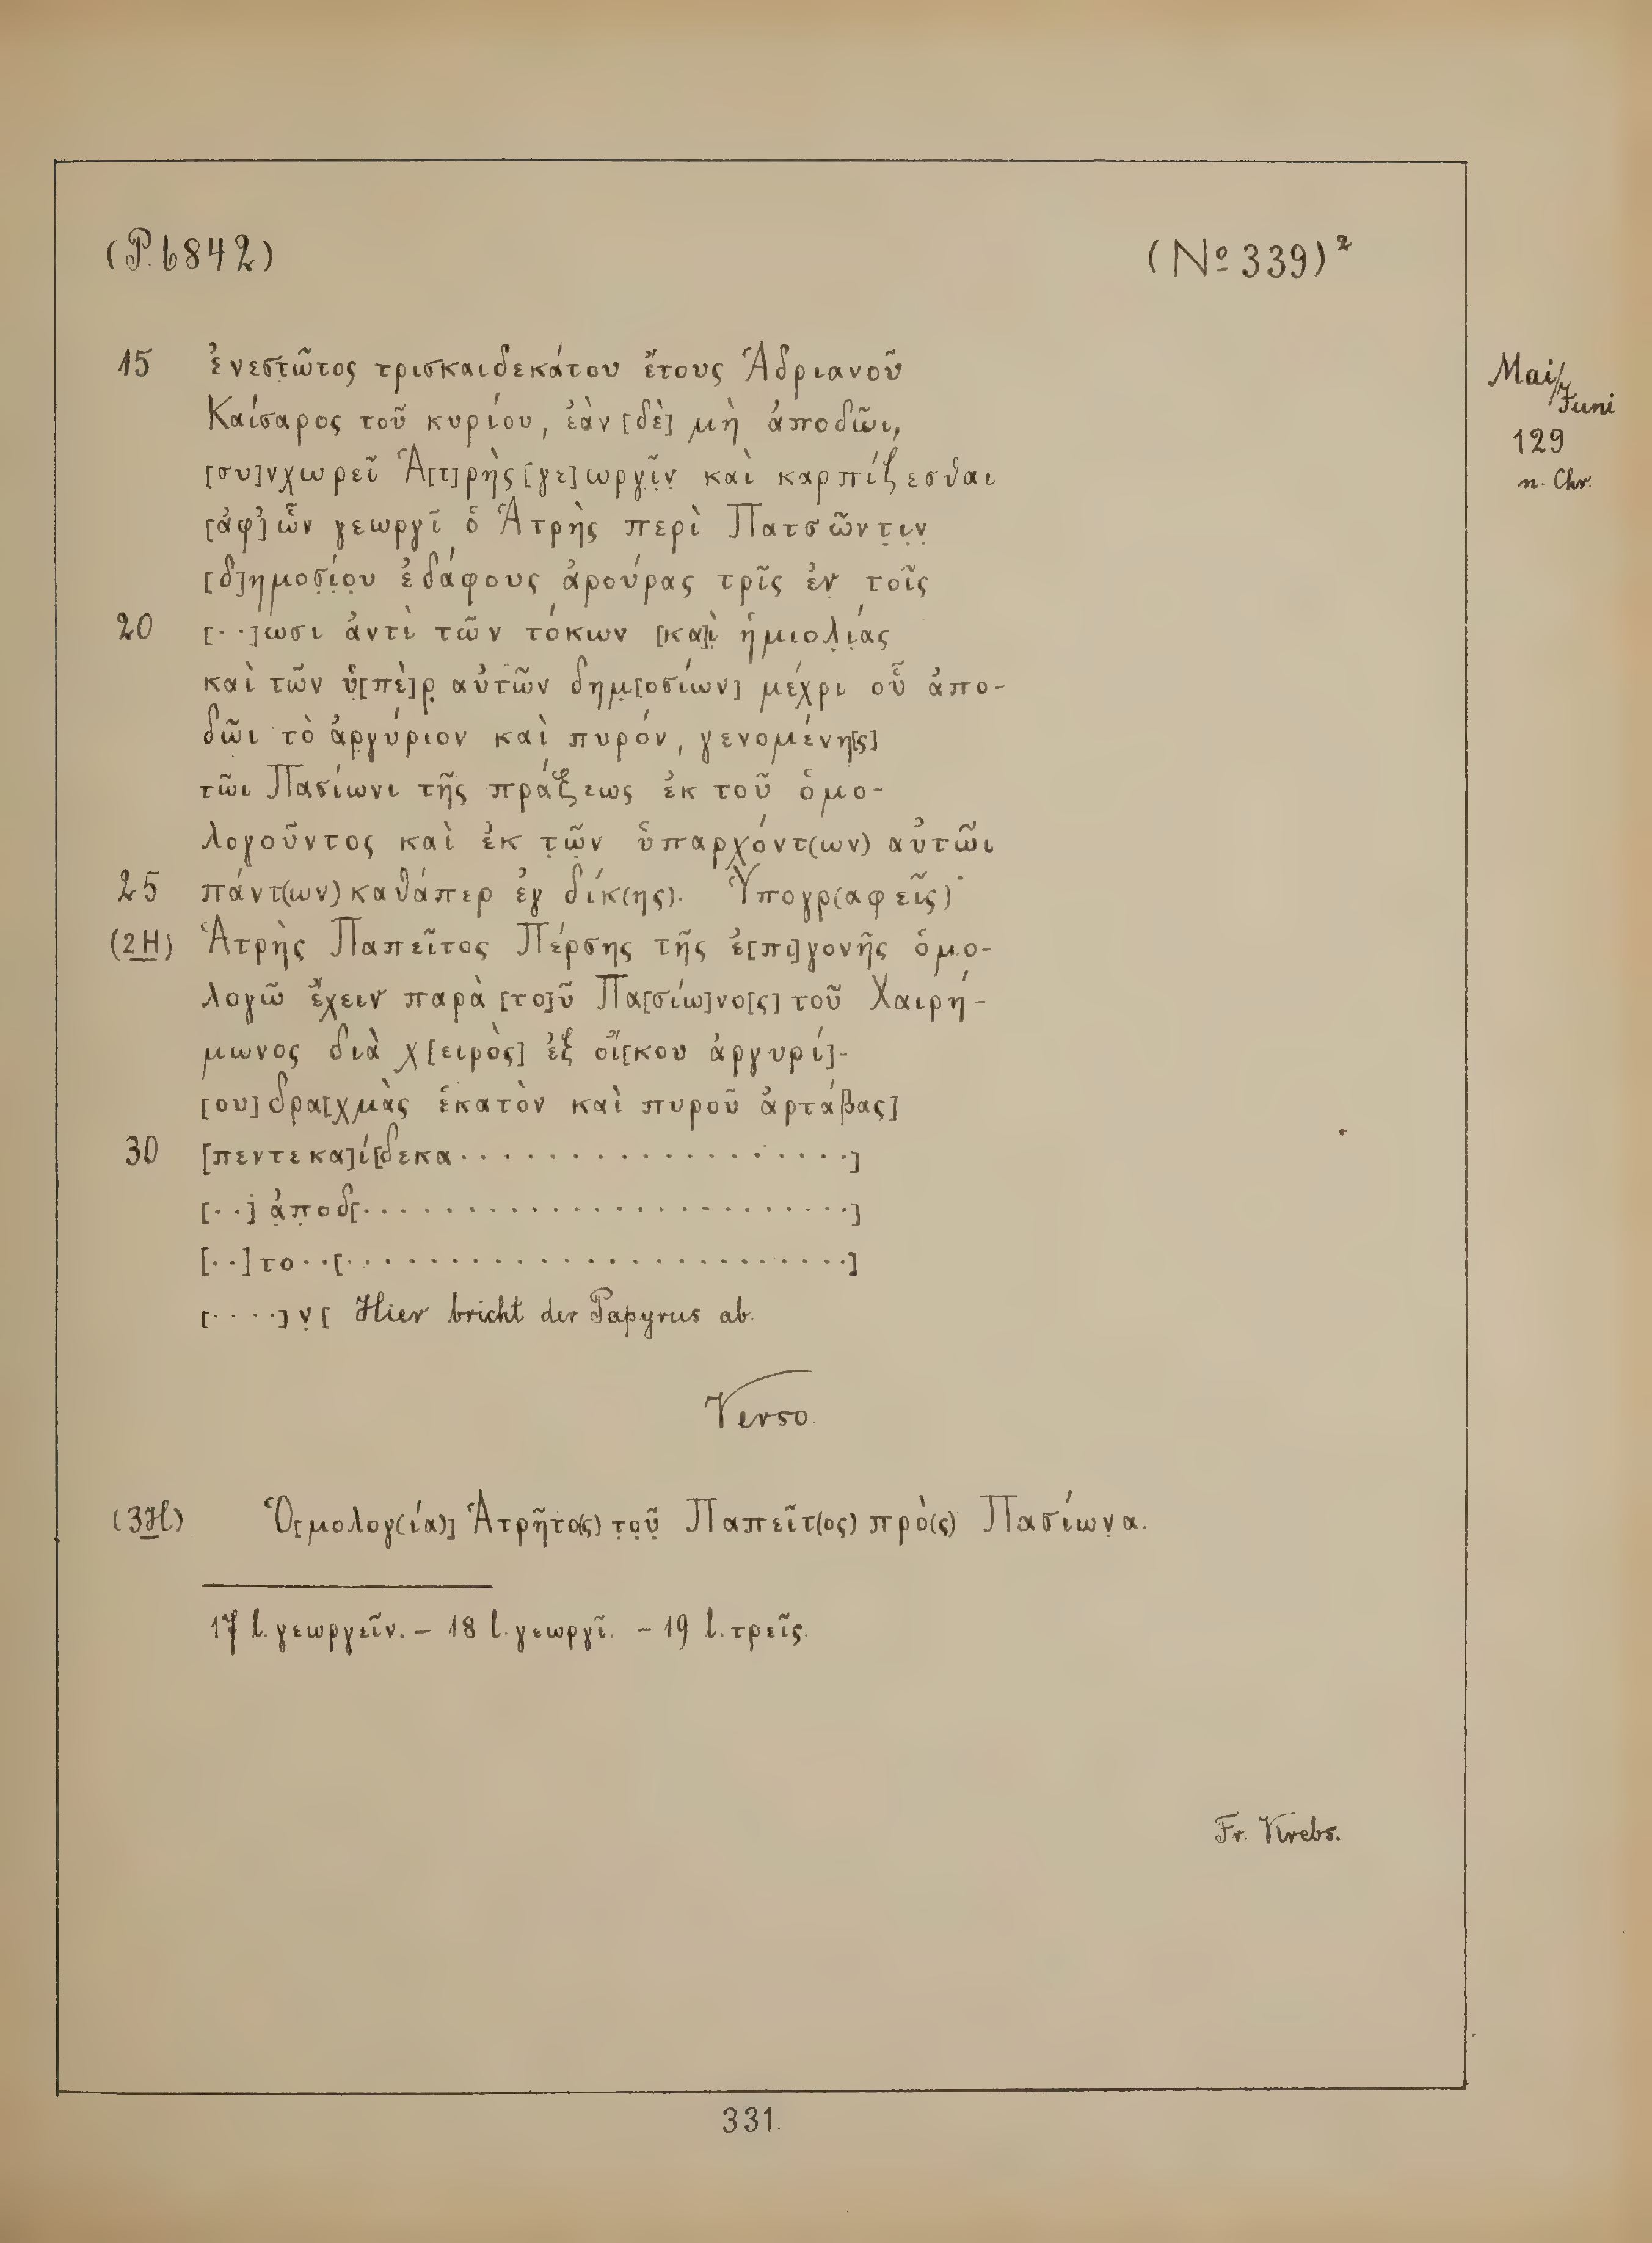 (P. 6842) (No 339)²
15 ἐνεστῶτος τρισκαιδεκάτου ἔτους Ἁδριανοῦ
Mai/Juni
129
n. Chr.
Καίσαρος τοῦ κυρίου, ἐὰν [δὲ] μὴ ἀποδῶι,
[συ]νχωρεῖ Ἁ[τ]ρῆς [γε]ωργῖ̣ν̣ καὶ καρπίζεσθαι
[ἀφ'] ὧν γεωργῖ ὁ Ἁτρῆς περὶ Πατσῶντ̣ι̣ν̣
[δ]ημοσ̣ί̣ο̣υ ἐδάφους ἀρούρας τρῖς ἐν τοῖς
20 [··]ωσι ἀντὶ τῶν τόκων [κα]ὶ̣ ἡμιολ̣ί̣ας
καὶ τῶν ὑ̣[πὲ]ρ̣ αὐτῶν δημ̣[οσίων] μέχρι οὗ ἀπο-
δῶι τὸ ἀρ̣γύριον καὶ πυρόν, γενομένη[ς]
τῶι Πασίωνι τῆς πράξεως ἐκ τοῦ ὁμο-
λογοῦντος καὶ ἐκ τ̣ῶ̣ν ὑπαρχόντ(ων) αὐτῶι
25 πάντ(ων) καθάπερ ἐγ δίκ(ης). Ὑπογρ(αφεῖς)·
(2H) Ἁτρὴς Παπεῖτος Πέρσης τῆς ἐ[πι]γονῆς ὁμο-
λογῶ ἔχειν παρὰ [το]ῦ Πα[σίω]νο[ς] τοῦ Χαιρή-
μωνος διὰ χ[ειρὸς] ἐξ οἴ[κου ἀργυρί]-
[ου] δρα[χμὰς ἑκατὸν καὶ πυροῦ ἀρτάβας]
30 [πεντεκα]ί[δεκα···················]
[··] ἀ̣π̣οδ[························]
[··]το··[·························]
[····]ν̣[ Hier bricht der Papyrus ab.
Verso.
(3H) Ὁ[μολογ(ία)] Ἁτρῆτο(ς) τ̣ο̣ῦ̣ Παπεῖτ(ος) πρὸ(ς) Πασίων̣α.
17 l. γεωργεῖν. – 18 l. γεωργῖ. – 19 l. τρεῖς.
Fr. Krebs.
331.